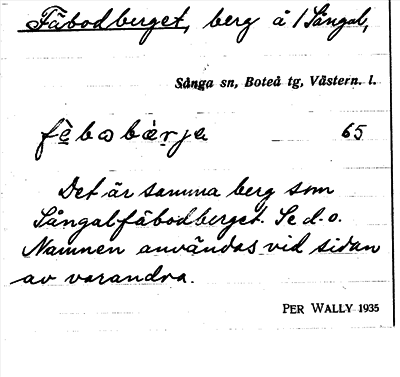 Fäbodberget, berg å /Sångal,
Sånga sn, Boteå tg, Västern. l.
fèbobàrja 65
Det är samma berg som
Sångalfäbodberget. Se d. o.
Namnen användas vid sidan
av varandra.
PER WALLY 1935